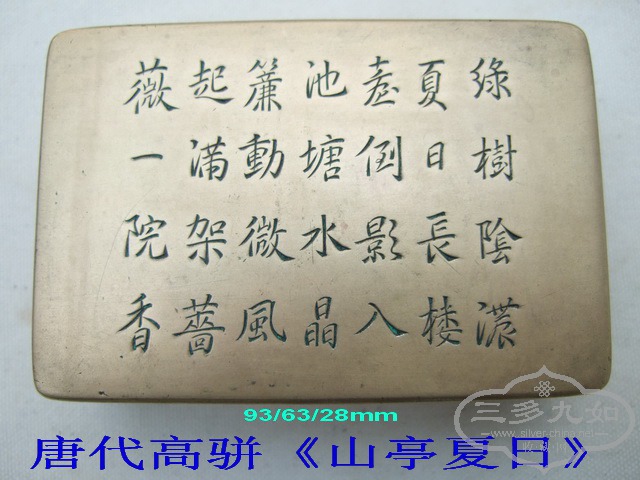 綠樹陰濃
夏日長楼
臺倒影入
池塘水晶
簾動微風
起满架薔
薇一院香
三多九如
93/63/28mm
唐代高骈《山亭夏日》